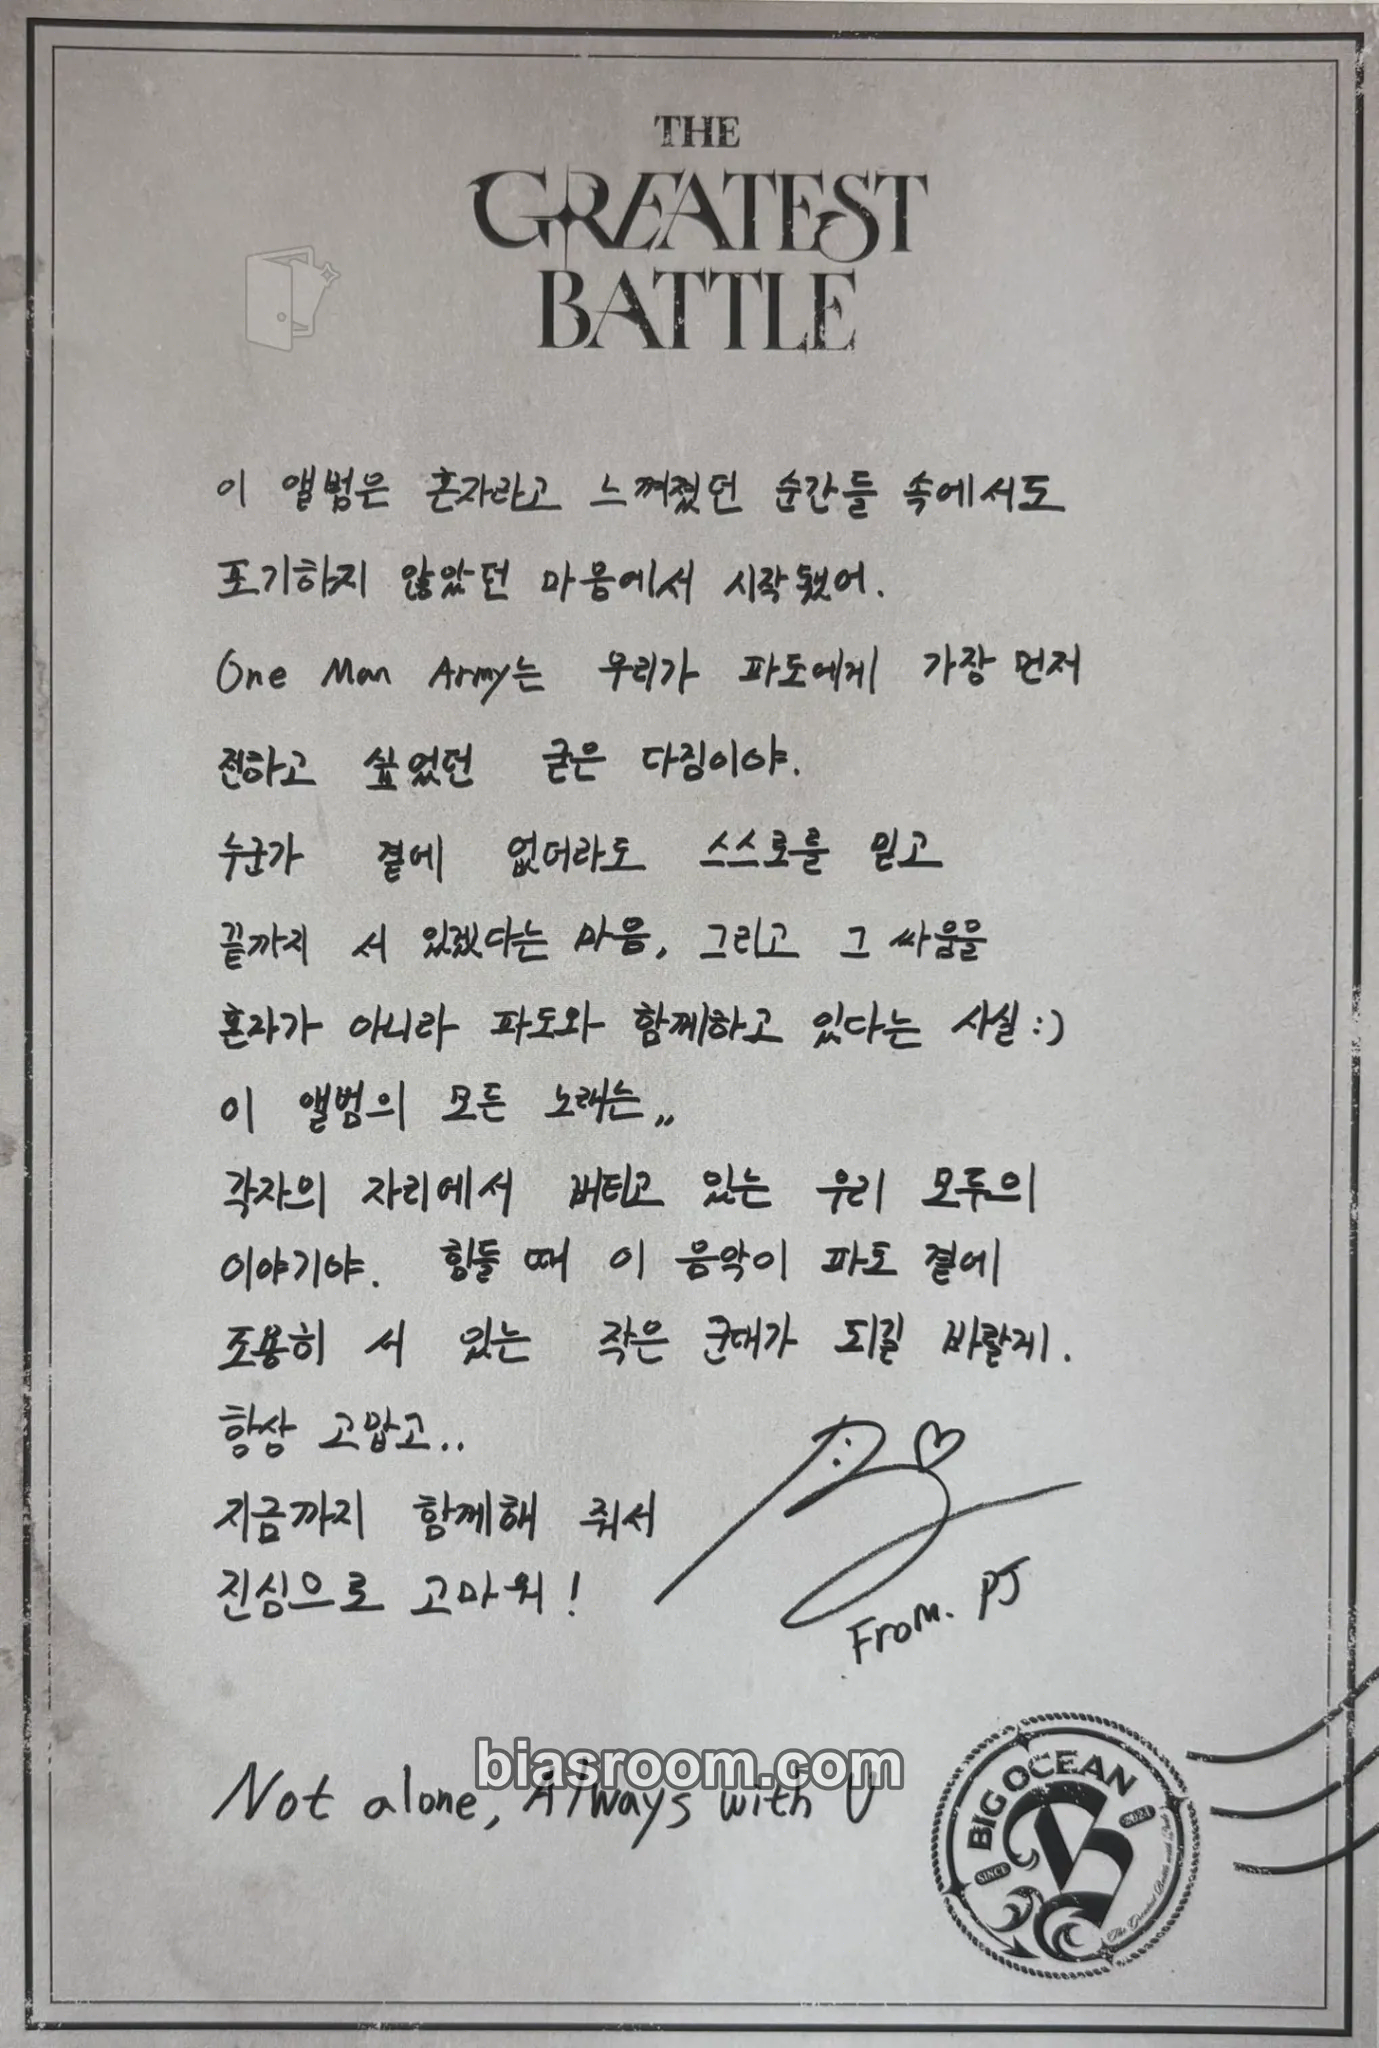 THE
GREATEST
BATTLE
이 앨범은 혼자라고 느껴졌던 순간들 속에서도
포기하지 않았던 마음에서 시작됐어.
One Man Army는 우리가 파도에게 가장 먼저
전하고 싶었던 굳은 다짐이야.
누군가 곁에 없더라도 스스로를 믿고
끝까지 서 있겠다는 마음, 그리고 그 싸움을
혼자가 아니라 파도와 함께하고 있다는 사실 :)
이 앨범의 모든 노래는,,
각자의 자리에서 버티고 있는 우리 모두의
이야기야. 힘들 때 이 음악이 파도 곁에
조용히 서 있는 작은 군대가 되길 바랄게.
항상 고맙고..
지금까지 함께해 줘서
진심으로 고마워!
From. PJ
biasroom.com
Not alone, Always with U
BIG OCEAN
SINCE 2024
B
The Greatest Battle with Pado